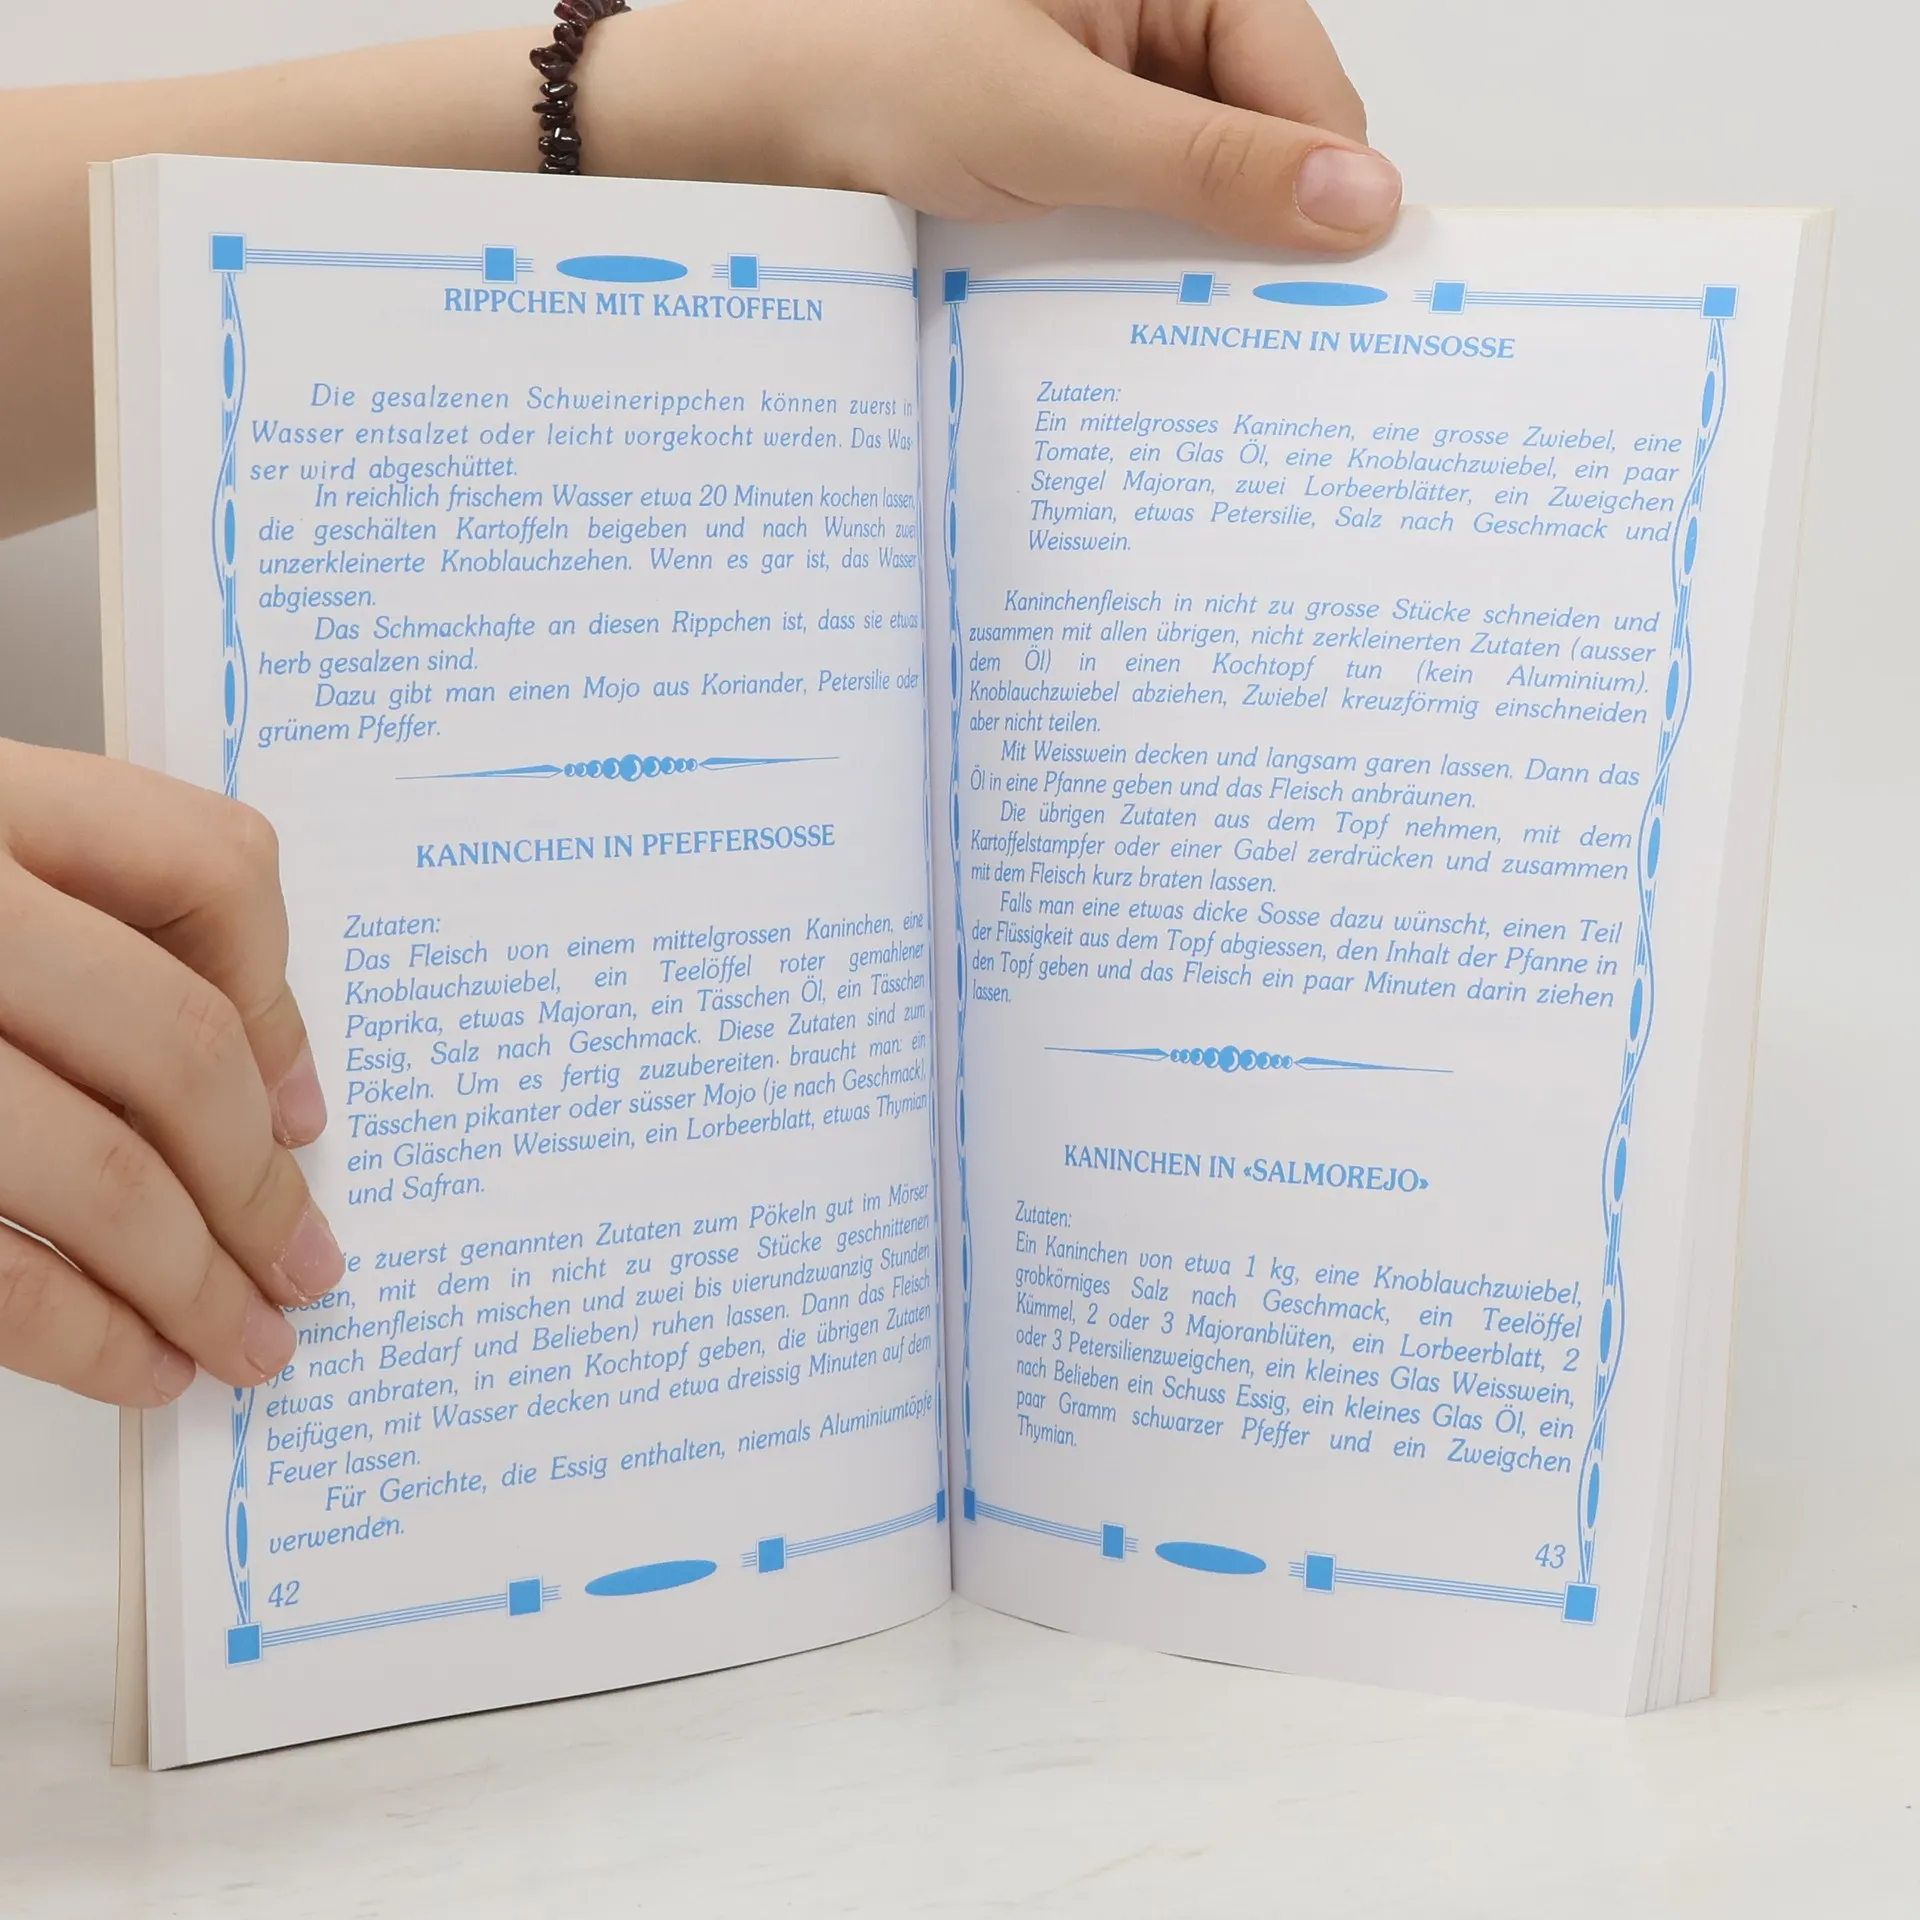 RIPPCHEN MIT KARTOFFELN
Die gesalzenen Schweinerippchen können zuerst in
Wasser entsalzet oder leicht vorgekocht werden. Das Was-
ser wird abgeschüttet.
In reichlich frischem Wasser etwa 20 Minuten kochen lassen,
die geschälten Kartoffeln beigeben und nach Wunsch zwei
unzerkleinerte Knoblauchzehen. Wenn es gar ist, das Wasser
abgiessen.
Das Schmackhafte an diesen Rippchen ist, dass sie etwas
herb gesalzen sind.
Dazu gibt man einen Mojo aus Koriander, Petersilie oder
grünem Pfeffer.
KANINCHEN IN PFEFFERSOSSE
Zutaten:
Das Fleisch von einem mittelgrossen Kaninchen, eine
Knoblauchzwiebel, ein Teelöffel roter gemahlener
Paprika, etwas Majoran, ein Tässchen Öl, ein Tässchen
Essig, Salz nach Geschmack. Diese Zutaten sind zum
Pökeln. Um es fertig zuzubereiten braucht man: ein
Tässchen pikanter oder süsser Mojo (je nach Geschmack),
ein Gläschen Weisswein, ein Lorbeerblatt, etwas Thymian
und Safran.
zuerst genannten Zutaten zum Pökeln gut im Mörser
mit dem in nicht zu grosse Stücke geschnittenen
ninchenfleisch mischen und zwei bis vierundzwanzig Stunden
(je nach Bedarf und Belieben) ruhen lassen. Dann das Fleisch
etwas anbraten, in einen Kochtopf geben, die übrigen Zutaten
beifügen, mit Wasser decken und etwa dreissig Minuten auf dem
Feuer lassen.
Für Gerichte, die Essig enthalten, niemals Aluminiumtöpfe
verwenden.
42
KANINCHEN IN WEINSOSSE
Zutaten:
Ein mittelgrosses Kaninchen, eine grosse Zwiebel, eine
Tomate, ein Glas Öl, eine Knoblauchzwiebel, ein paar
Stengel Majoran, zwei Lorbeerblätter, ein Zweigchen
Thymian, etwas Petersilie, Salz nach Geschmack und
Weisswein.
Kaninchenfleisch in nicht zu grosse Stücke schneiden und
zusammen mit allen übrigen, nicht zerkleinerten Zutaten (ausser
dem Öl) in einen Kochtopf tun (kein Aluminium).
Knoblauchzwiebel abziehen, Zwiebel kreuzförmig einschneiden
aber nicht teilen.
Mit Weisswein decken und langsam garen lassen. Dann das
Öl in eine Pfanne geben und das Fleisch anbräunen.
Die übrigen Zutaten aus dem Topf nehmen, mit dem
Kartoffelstampfer oder einer Gabel zerdrücken und zusammen
mit dem Fleisch kurz braten lassen.
Falls man eine etwas dicke Sosse dazu wünscht, einen Teil
der Flüssigkeit aus dem Topf abgiessen, den Inhalt der Pfanne in
den Topf geben und das Fleisch ein paar Minuten darin ziehen
lassen.
KANINCHEN IN «SALMOREJO»
Zutaten:
Ein Kaninchen von etwa 1 kg, eine Knoblauchzwiebel,
grobkörniges Salz nach Geschmack, ein Teelöffel
Kümmel, 2 oder 3 Majoranblüten, ein Lorbeerblatt, 2
oder 3 Petersilienzweigchen, ein kleines Glas Weisswein,
nach Belieben ein Schuss Essig, ein kleines Glas Öl, ein
paar Gramm schwarzer Pfeffer und ein Zweigchen
Thymian.
43